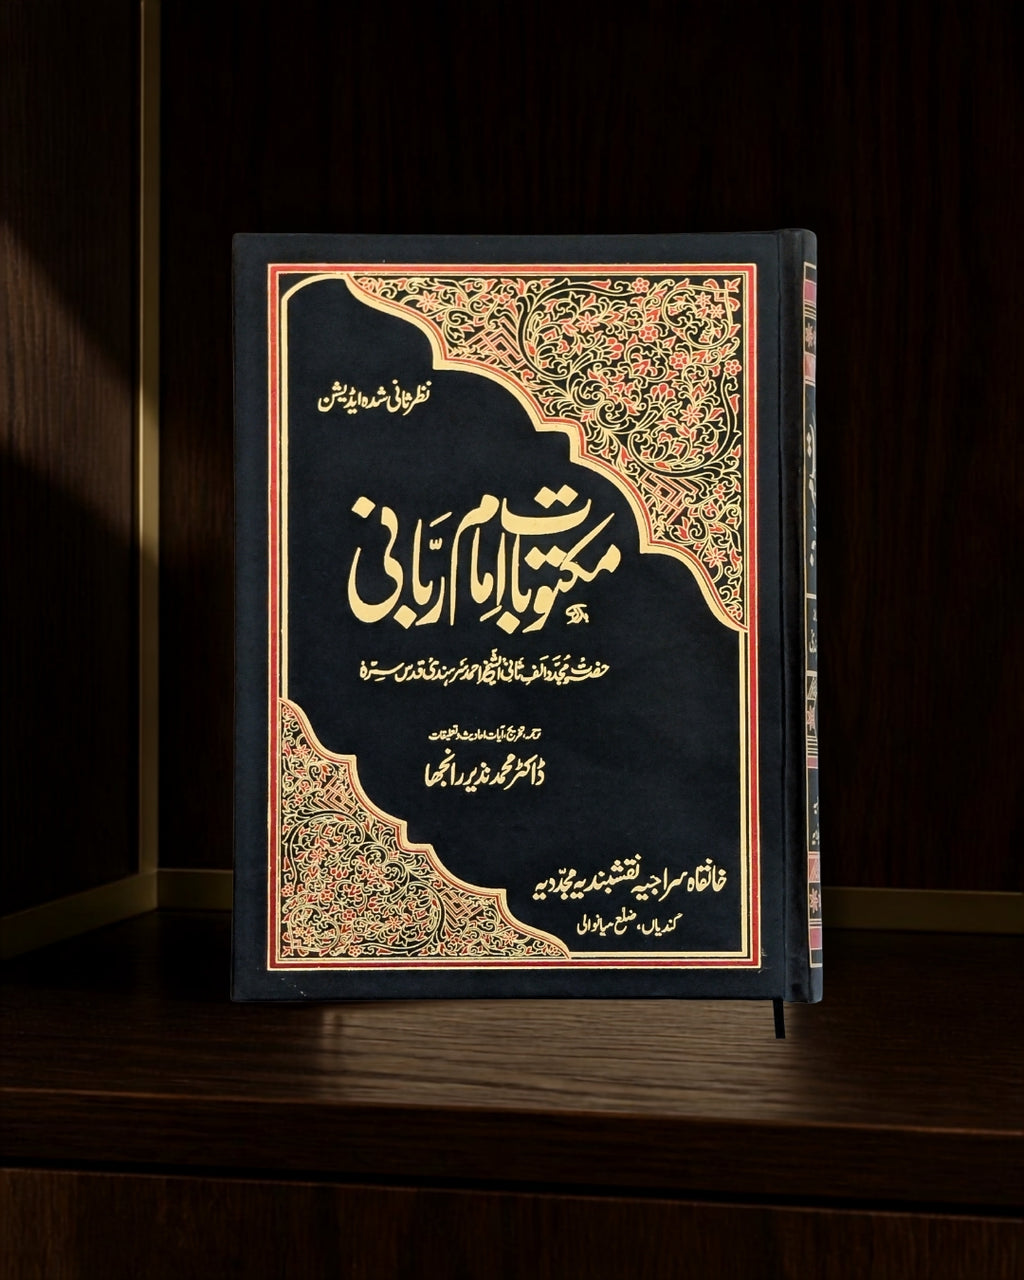 نظر ثانی شدہ ایڈیشن
مکتوبات امام ربّانی
حضرت مجدد الف ثانی الشیخ احمد سرہندی قدس سرہ
ترجمہ، تخریج، آیات، احادیث و تعلیقات
ڈاکٹر محمد نذیر رانجھا
خانقاہ سراجیہ نقشبندیہ مجدّدیہ
کندیاں، ضلع میانوالی